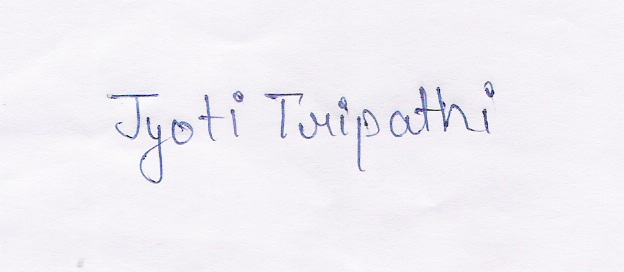 Jyoti Tripathi